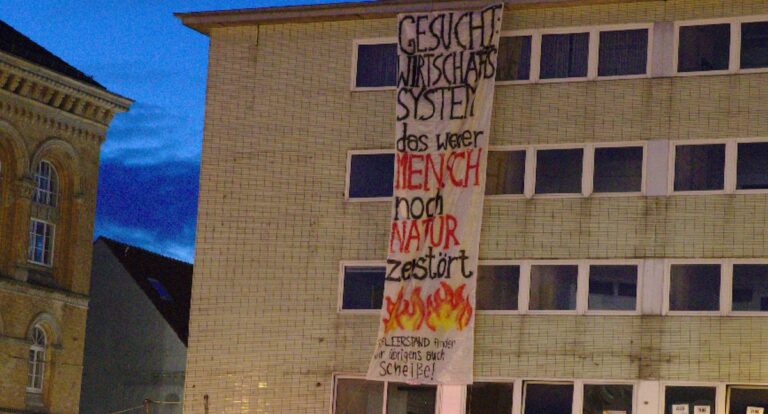 GESUCHT:
WIRTSCHAFTS
SYSTEM
das weder
MENSCH
noch
NATUR
zerstört
LEERSTAND finden
wir übrigens auch
Scheiße!